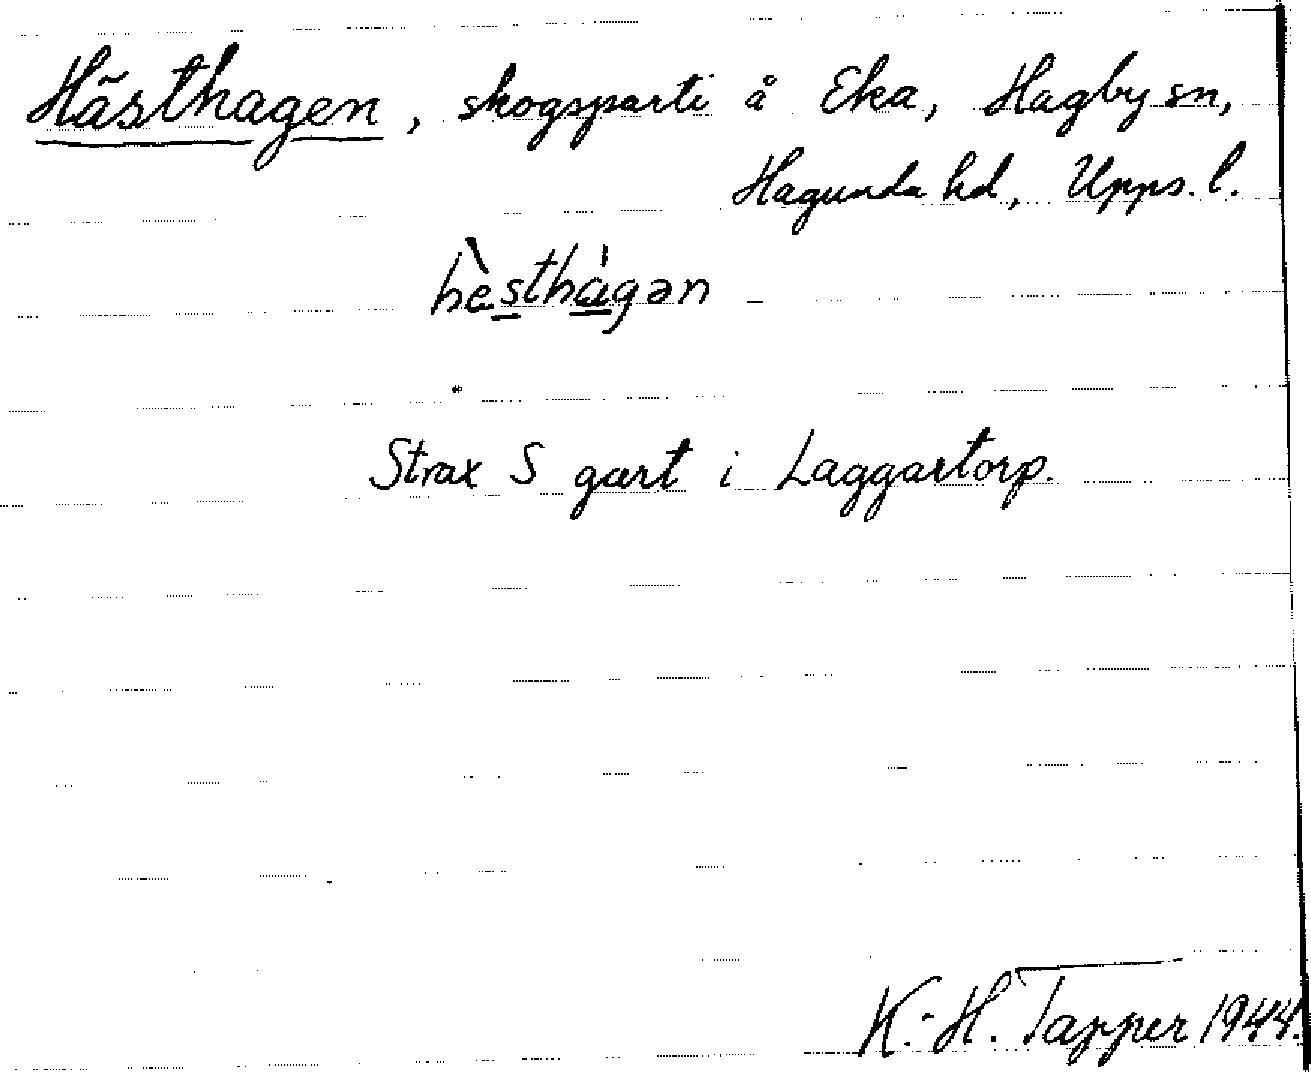 Hästhagen, skogsparti å Eka, Hagby sn,
Hagunda hd, Upps. l.
hèsthàgən
Strax S gært i Laggartorp.
K.-H. Tapper 1944.